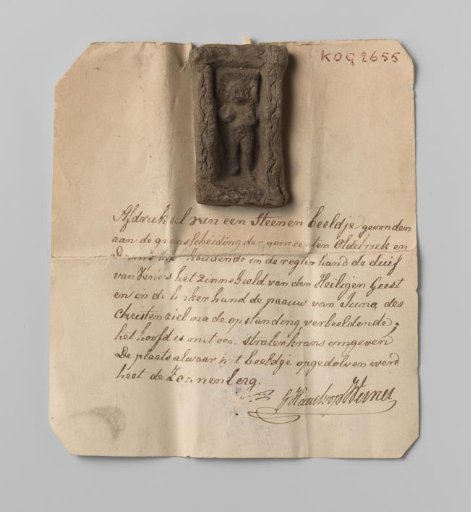 KOG 2655
Afdruksel van een Steenen beeldje gevonden
aan de grensscheiding der gemeenten Oldebroek en
houdende in de regterhand de duif
van Venus het zinnebeeld van den Heiligen Geest
en op de linkerhand de paauw van Juno, des
Christen ziel na de opstanding verbeeldende,
het hoofd is met een stralenkrans omgeven
De plaats alwaar het beeldje opgedolven werd
heet de Zonnenberg.